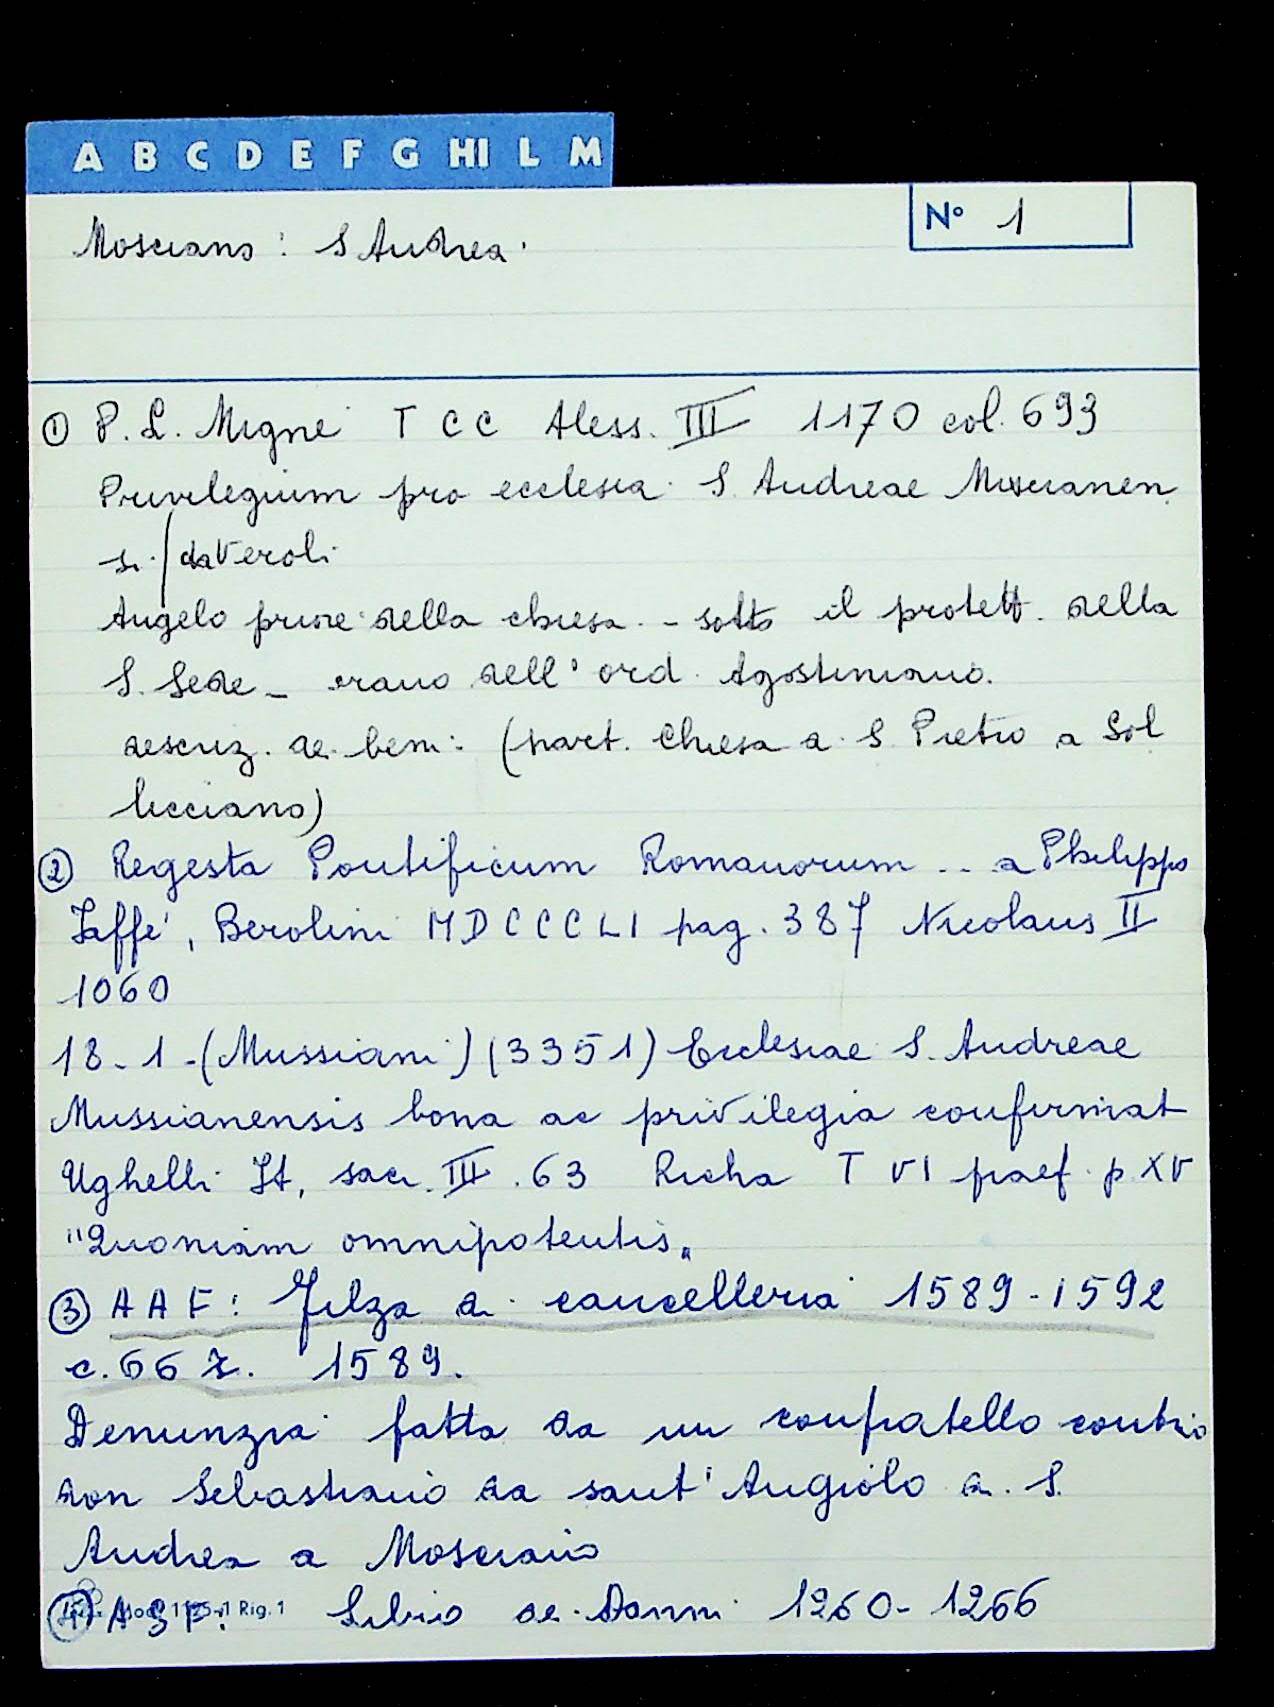 A B C D E F G HI L M
Mosciano: S Andrea.
N° 1
① P. L. Migne T CC Aless. III 1170 col. 693
Privilegium pro ecclesia S. Andreae Muscianen
si / da Veroli
Angelo priore della chiesa - sotto il protett. della
S. Sede - erano dell'ord. Agostiniano.
descriz. dei beni: (part. chiesa di S Pietro a Sol
licciano)
② Regesta Pontificum Romanorum .. a Philippo
Jaffé, Berolini MDCCCLI pag. 387 Nicolaus II
1060
18-1-(Mussiani) (3351) Ecclesiae S. Andreae
Mussianensis bona ac privilegia confirmat
Ughelli It. sacr. III. 63 Richa T VI praef. p XV
"Quoniam omnipotentis"
③ AAF: Filza di cancelleria 1589-1592
c. 66 r. 1589.
Denunzia fatta da un confratello contro
don Sebastiano da sant'Angiolo di S.
Andrea a Mosciano
Mod. 1155/1 Rig. 1
④ ASF: Libro dei Danni 1260-1266